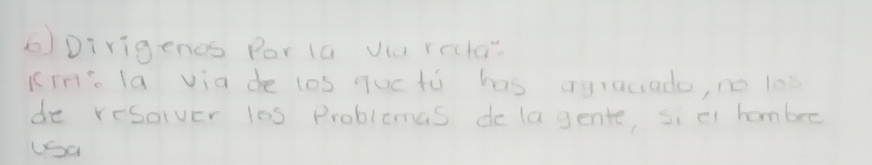 6) Dirigenos Por la via recta:
la via de los que tú has agraciado, no los
de resolver los Problemas de la gente, si el hombre
usa